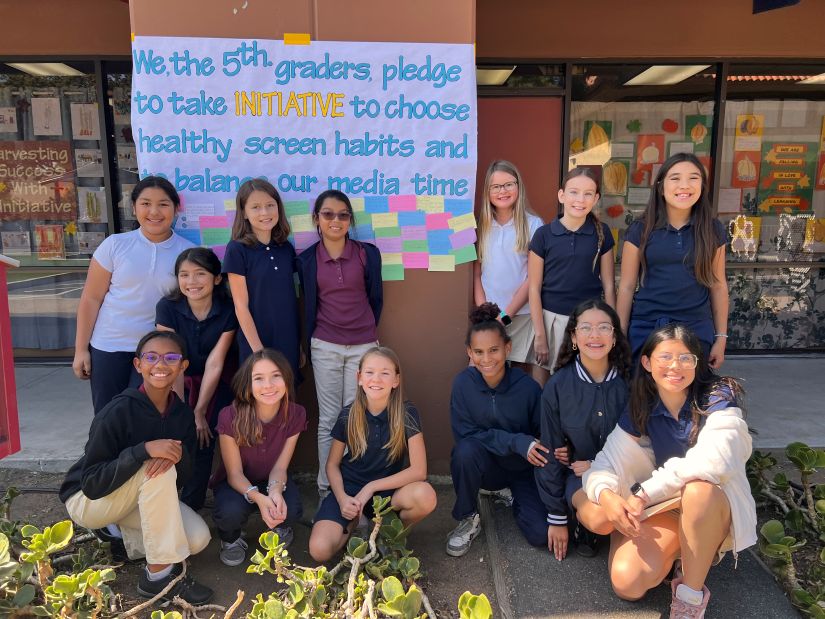 We, the 5th graders, pledge
to take INITIATIVE to choose
healthy screen habits and
to balance our media time
Harvesting
Success
With
Initiative
WE ARE
FALLING
IN LOVE
WITH